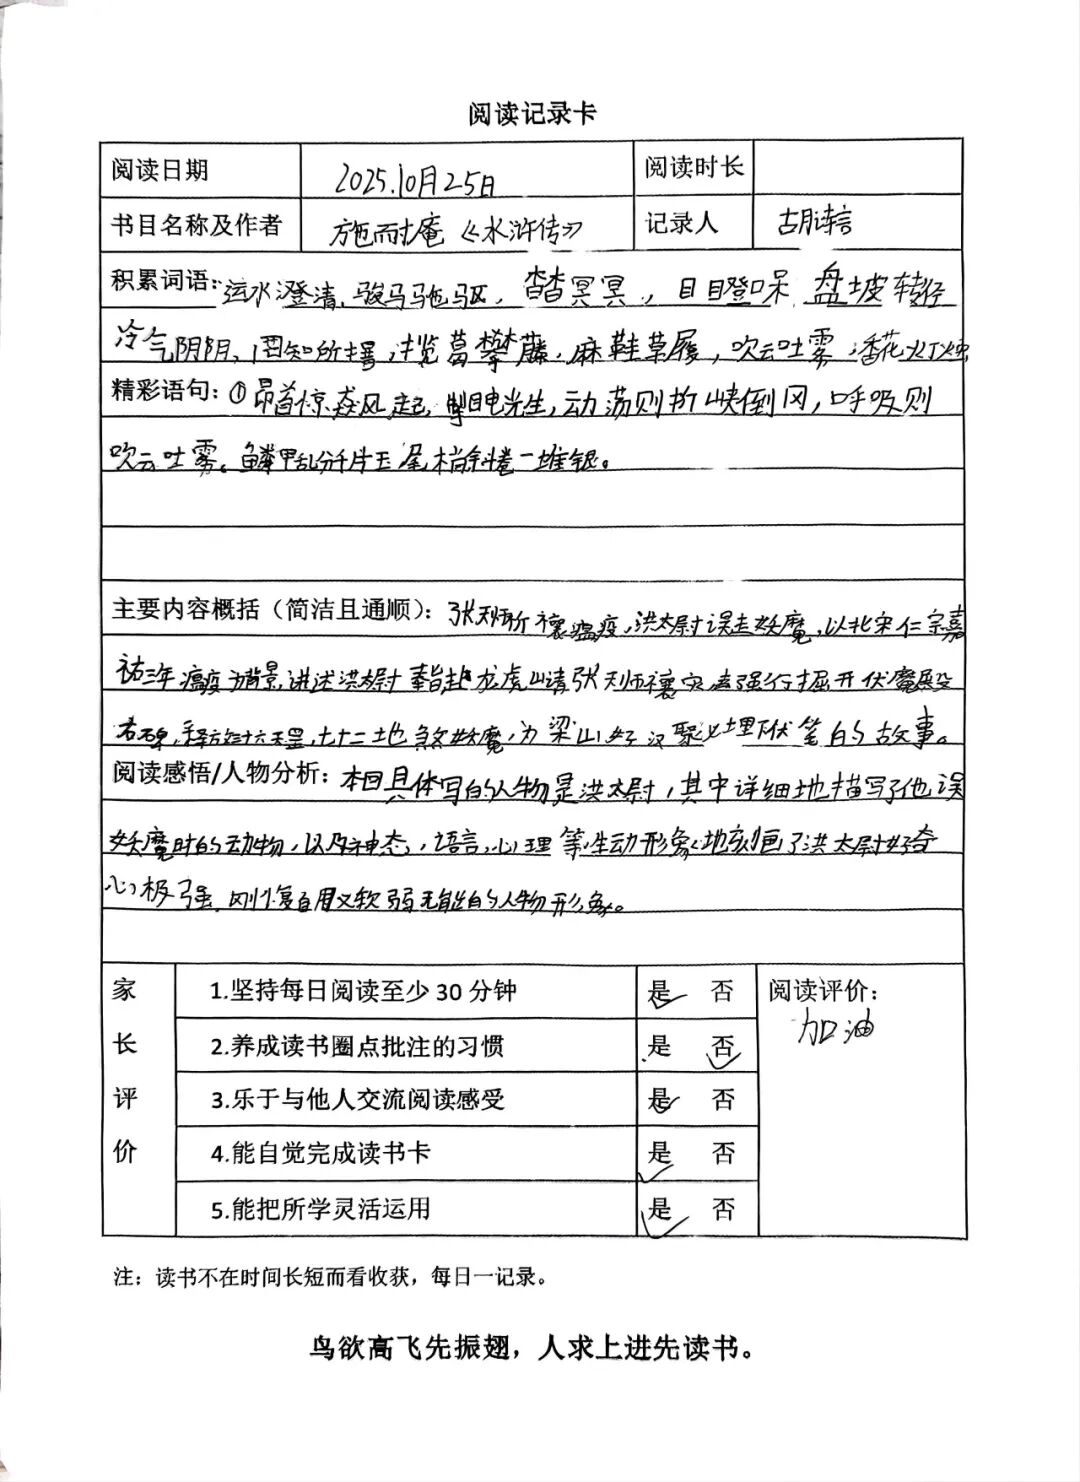 阅读记录卡
阅读日期 2025.10月25日 阅读时长
书目名称及作者 施耐庵《水浒传》 记录人
积累词语: 运水澄清、骏马驰驱，杳杳冥冥，目瞪口呆 盘坡转径
冷气阴阴、罔知所措，揽葛攀藤、麻鞋草履，吹云吐雾、香花灯烛
精彩语句: ①昂首惊飙风起，掣目电光生，动荡则折峡倒冈，呼吸则
吹云吐雾。鳞甲乱分千片玉 尾梢斜卷一堆银。
主要内容概括（简洁且通顺）: 张天师祈禳瘟疫，洪太尉误走妖魔，以北宋仁宗嘉
祐三年瘟疫为背景，讲述洪太尉奉旨赴龙虎山请张天师禳灾 强行掘开伏魔殿
石碑，释放三十六天罡，七十二地煞妖魔，为梁山好汉聚义埋伏笔的故事。
阅读感悟/人物分析: 本回具体写的人物是洪太尉，其中详细地描写了他误
妖魔时的动物，以及神态，语言，心理等，生动形象地刻画了洪太尉好奇
心极强、刚愎自用又软弱无能的人物形象。
家长评价
1.坚持每日阅读至少30分钟 是 否 阅读评价:
加油
2.养成读书圈点批注的习惯 是 否
3.乐于与他人交流阅读感受 是 否
4.能自觉完成读书卡 是 否
5.能把所学灵活运用 是 否
注: 读书不在时间长短而看收获，每日一记录。
鸟欲高飞先振翅，人求上进先读书。